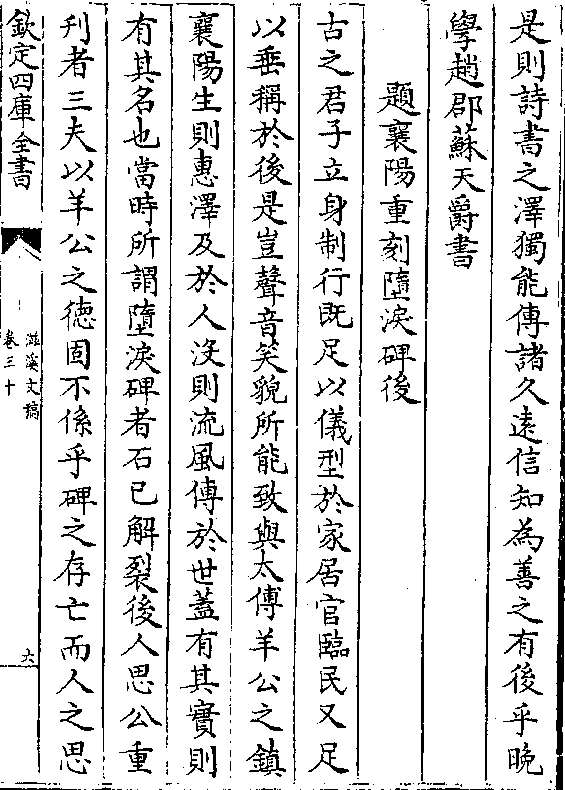 是則詩書之澤獨能傳諸久遠信知為善之有後乎晚
學趙郡蘇天爵書
題襄陽重刻墮淚碑後
古之君子立身制行既足以儀型於家居官臨民又足
以垂稱於後是豈聲音笑貌所能致與太傅羊公之鎮
襄陽生則惠澤及於人沒則流風傳於世蓋有其實則
有其名也當時所謂墮淚碑者石已解裂後人思公重
刋者三夫以羊公之徳固不係乎碑之存亡而人之思
欽定四庫全書
滋溪文稿
卷三十
六